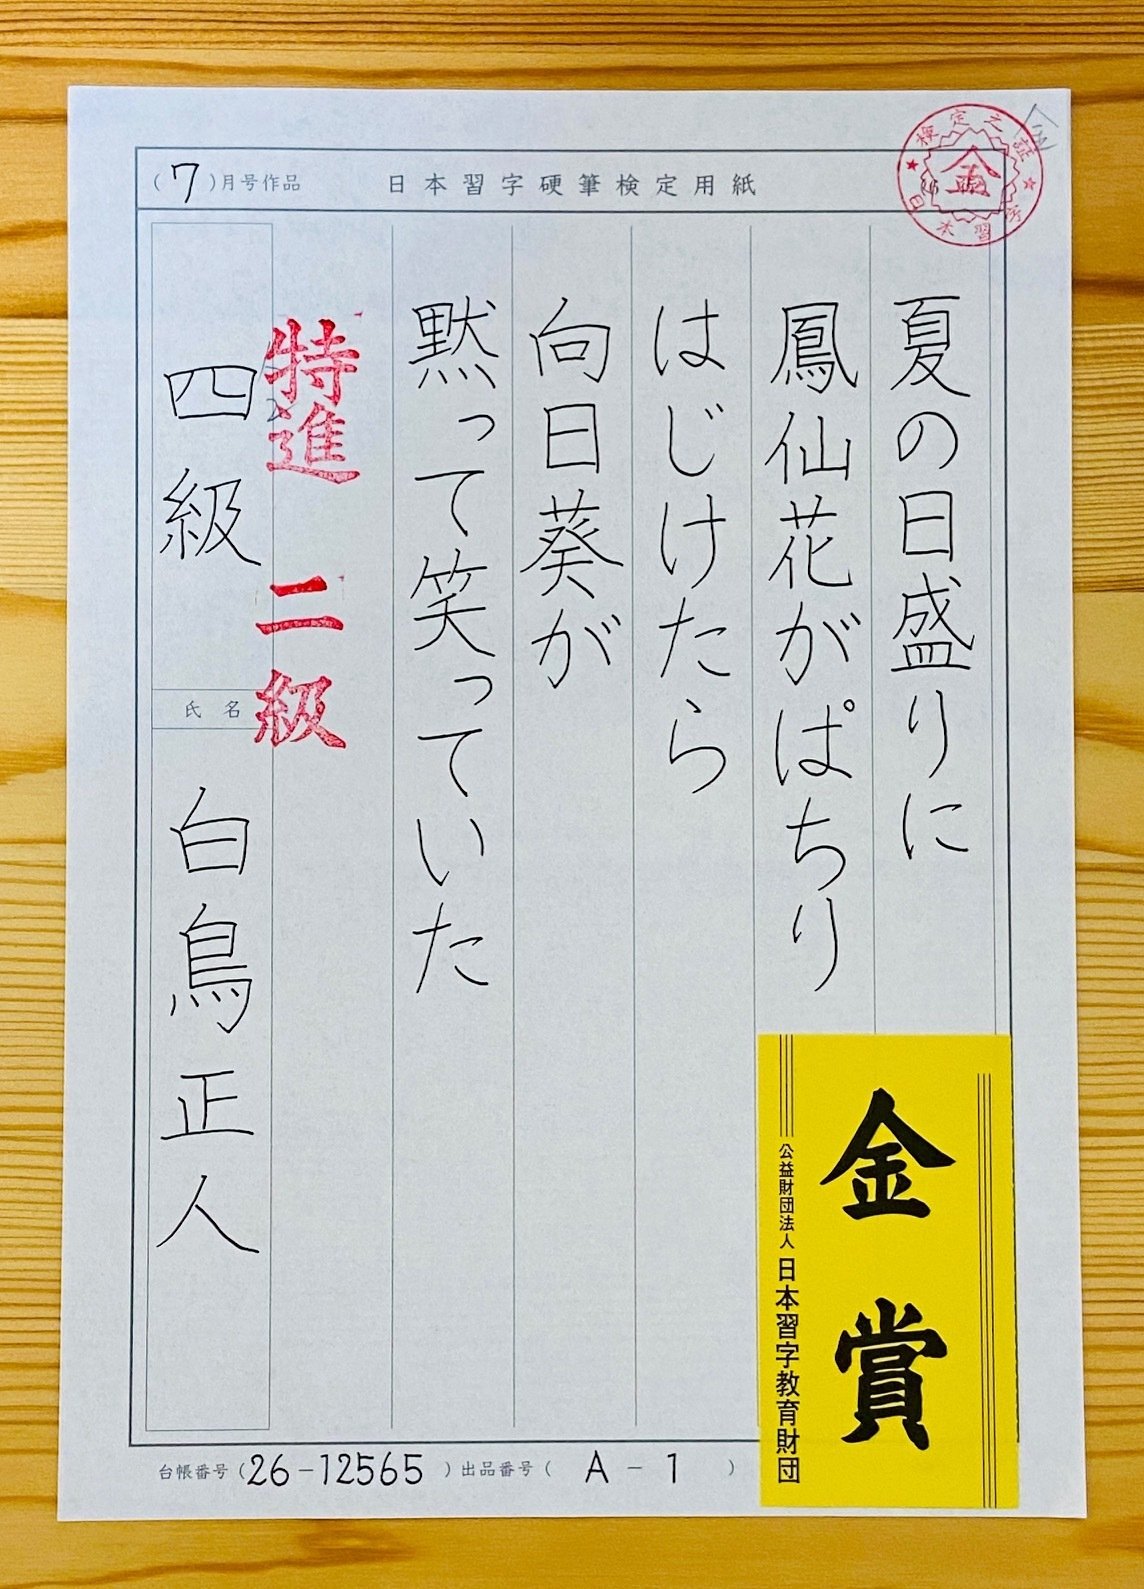 (7)月号作品
日本習字硬筆検定用紙
検定之証
金
日本習
夏の日盛りに
鳳仙花がぱちり
はじけたら
向日葵が
黙って笑っていた
特進 二級
四級
氏名
白鳥正人
金賞
公益財団法人 日本習字教育財団
台帳番号(26-12565)出品番号( A-1 )